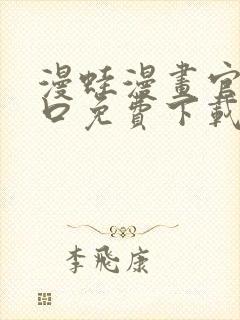 漫蛙漫畫官
口免費下載
李飛康